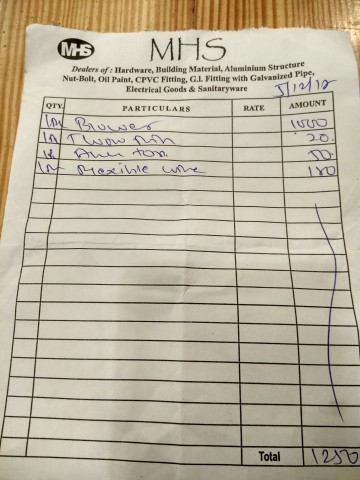 MHS MHS
Dealers of : Hardware, Building Material, Aluminium Structure
Nut-Bolt, Oil Paint, CPVC Fitting, G.I. Fitting with Galvanized Pipe,
Electrical Goods & Sanitaryware
5/12/12
QTY. PARTICULARS RATE AMOUNT
Blower 1000
20.
50.
Flexible wire 180
Total 1250